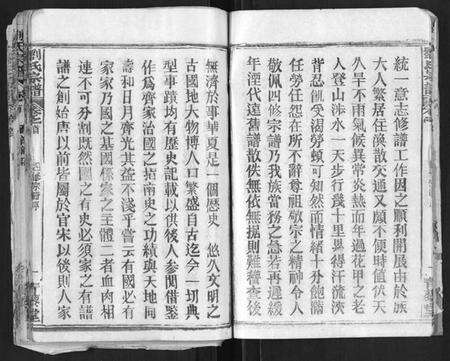 統一意志修譜工作因之順利開展由於族
大人繁居住渙散交通又頗不便時值伏天
久旱不雨氣候異常炎熱而年過花甲之老
人登山涉水一天步行幾十里累得汗流浹
背忍飢受渴勞頓可知然而情緒十分飽滿
任勞任怨在所不辭尊祖敬宗之精神令人
敬佩四修宗譜乃我族當務之急若再過緩
年湮代遠舊譜散佚無據則難查後
無濟於事華夏是一個歷史 悠久文明之
古國地大物博人口繁盛自古迄今一切典
型事蹟均有歷史記載以供後人參閱借鑒
作為齊家治國之指南史之功績與天地同
壽和日月齊光其益不淺乎嘗云有國必有
家家乃國之基國係家之主體二者血肉相
連不可分割既然國之有史必須家之有譜
譜之創始唐以前皆屬於官宋以後則人家
劉氏宗譜 卷首